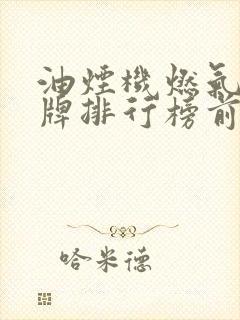 油煙機燃氣
牌排行榜前
哈米德